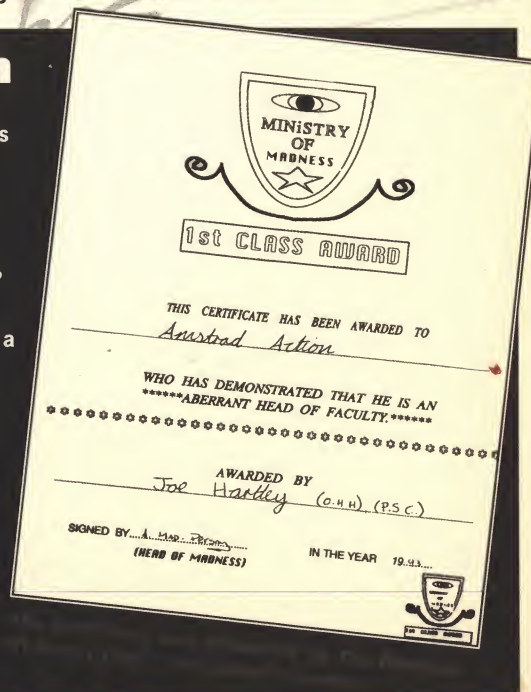 s
a
MINiSTRY
OF
MADNESS
1st CLASS AWARD
THIS CERTIFICATE HAS BEEN AWARDED TO
Amstrad Action
WHO HAS DEMONSTRATED THAT HE IS AN
******ABERRANT HEAD OF FACULTY.******
AWARDED BY
Joe Hartley (O.H.H) (P.S.C.)
SIGNED BY....A. MAD. Person....
IN THE YEAR 19.93....
(HEAD OF MADNESS)
1st CLASS AWARD